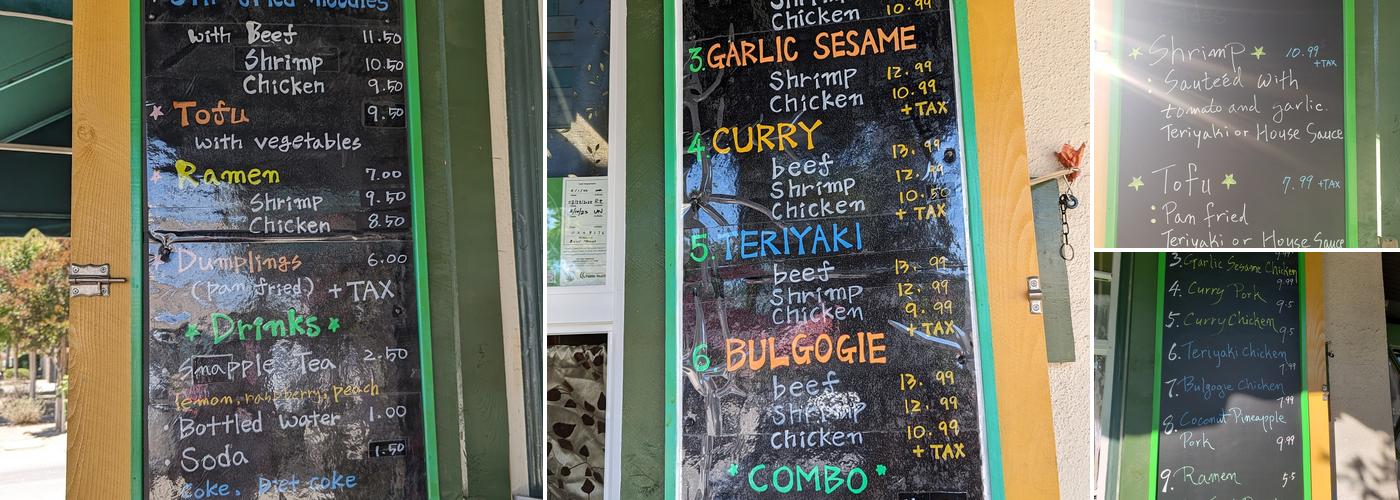 Stir fried Noodles
with Beef 11.50
Shrimp 10.50
Chicken 9.50
Tofu 9.50
with vegetables
Ramen 7.00
Shrimp 9.50
Chicken 8.50
Dumplings 6.00
(pan fried) + TAX
Drinks
Snapple Tea 2.50
lemon, raspberry, peach
Bottled Water 1.00
Soda 1.50
Coke, Diet coke
Shrimp
Chicken 10.99
3. GARLIC SESAME
Shrimp 12.99
Chicken 10.99
+ TAX
4. CURRY
beef 13.99
Shrimp 12.99
Chicken 10.50
+ TAX
5. TERIYAKI
beef 13.99
Shrimp 12.99
Chicken 9.99
+ TAX
6. BULGOGIE
beef 13.99
Shrimp 12.99
Chicken 10.99
+ TAX
COMBO
Shrimp 10.99
+TAX
: Sauteéd with
tomato and garlic.
Teriyaki or House Sauce
Tofu 7.99 +TAX
: Pan fried
Teriyaki or House Sauce
3. Garlic Sesame Chicken
9.99
4. Curry Pork 9.5
5. Curry Chicken 9.5
6. Teriyaki Chicken
7.99
7. Bulgogie Chicken
7.99
8. Coconut Pineapple
Pork 9.99
9. Ramen 5.5